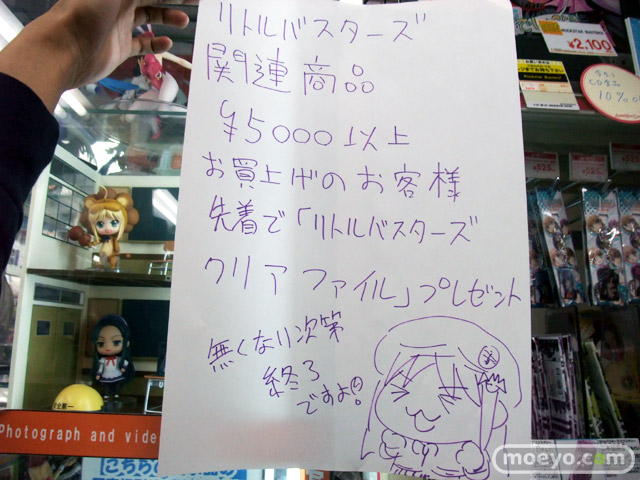 リトルバスターズ
関連商品
¥5000以上
お買上げのお客様
先着で「リトルバスターズ
クリアファイル」プレゼント
無くなり次第
終了
ですよ!
¥2,100
10%
Photograph and vide
こちらの
moeyo.com